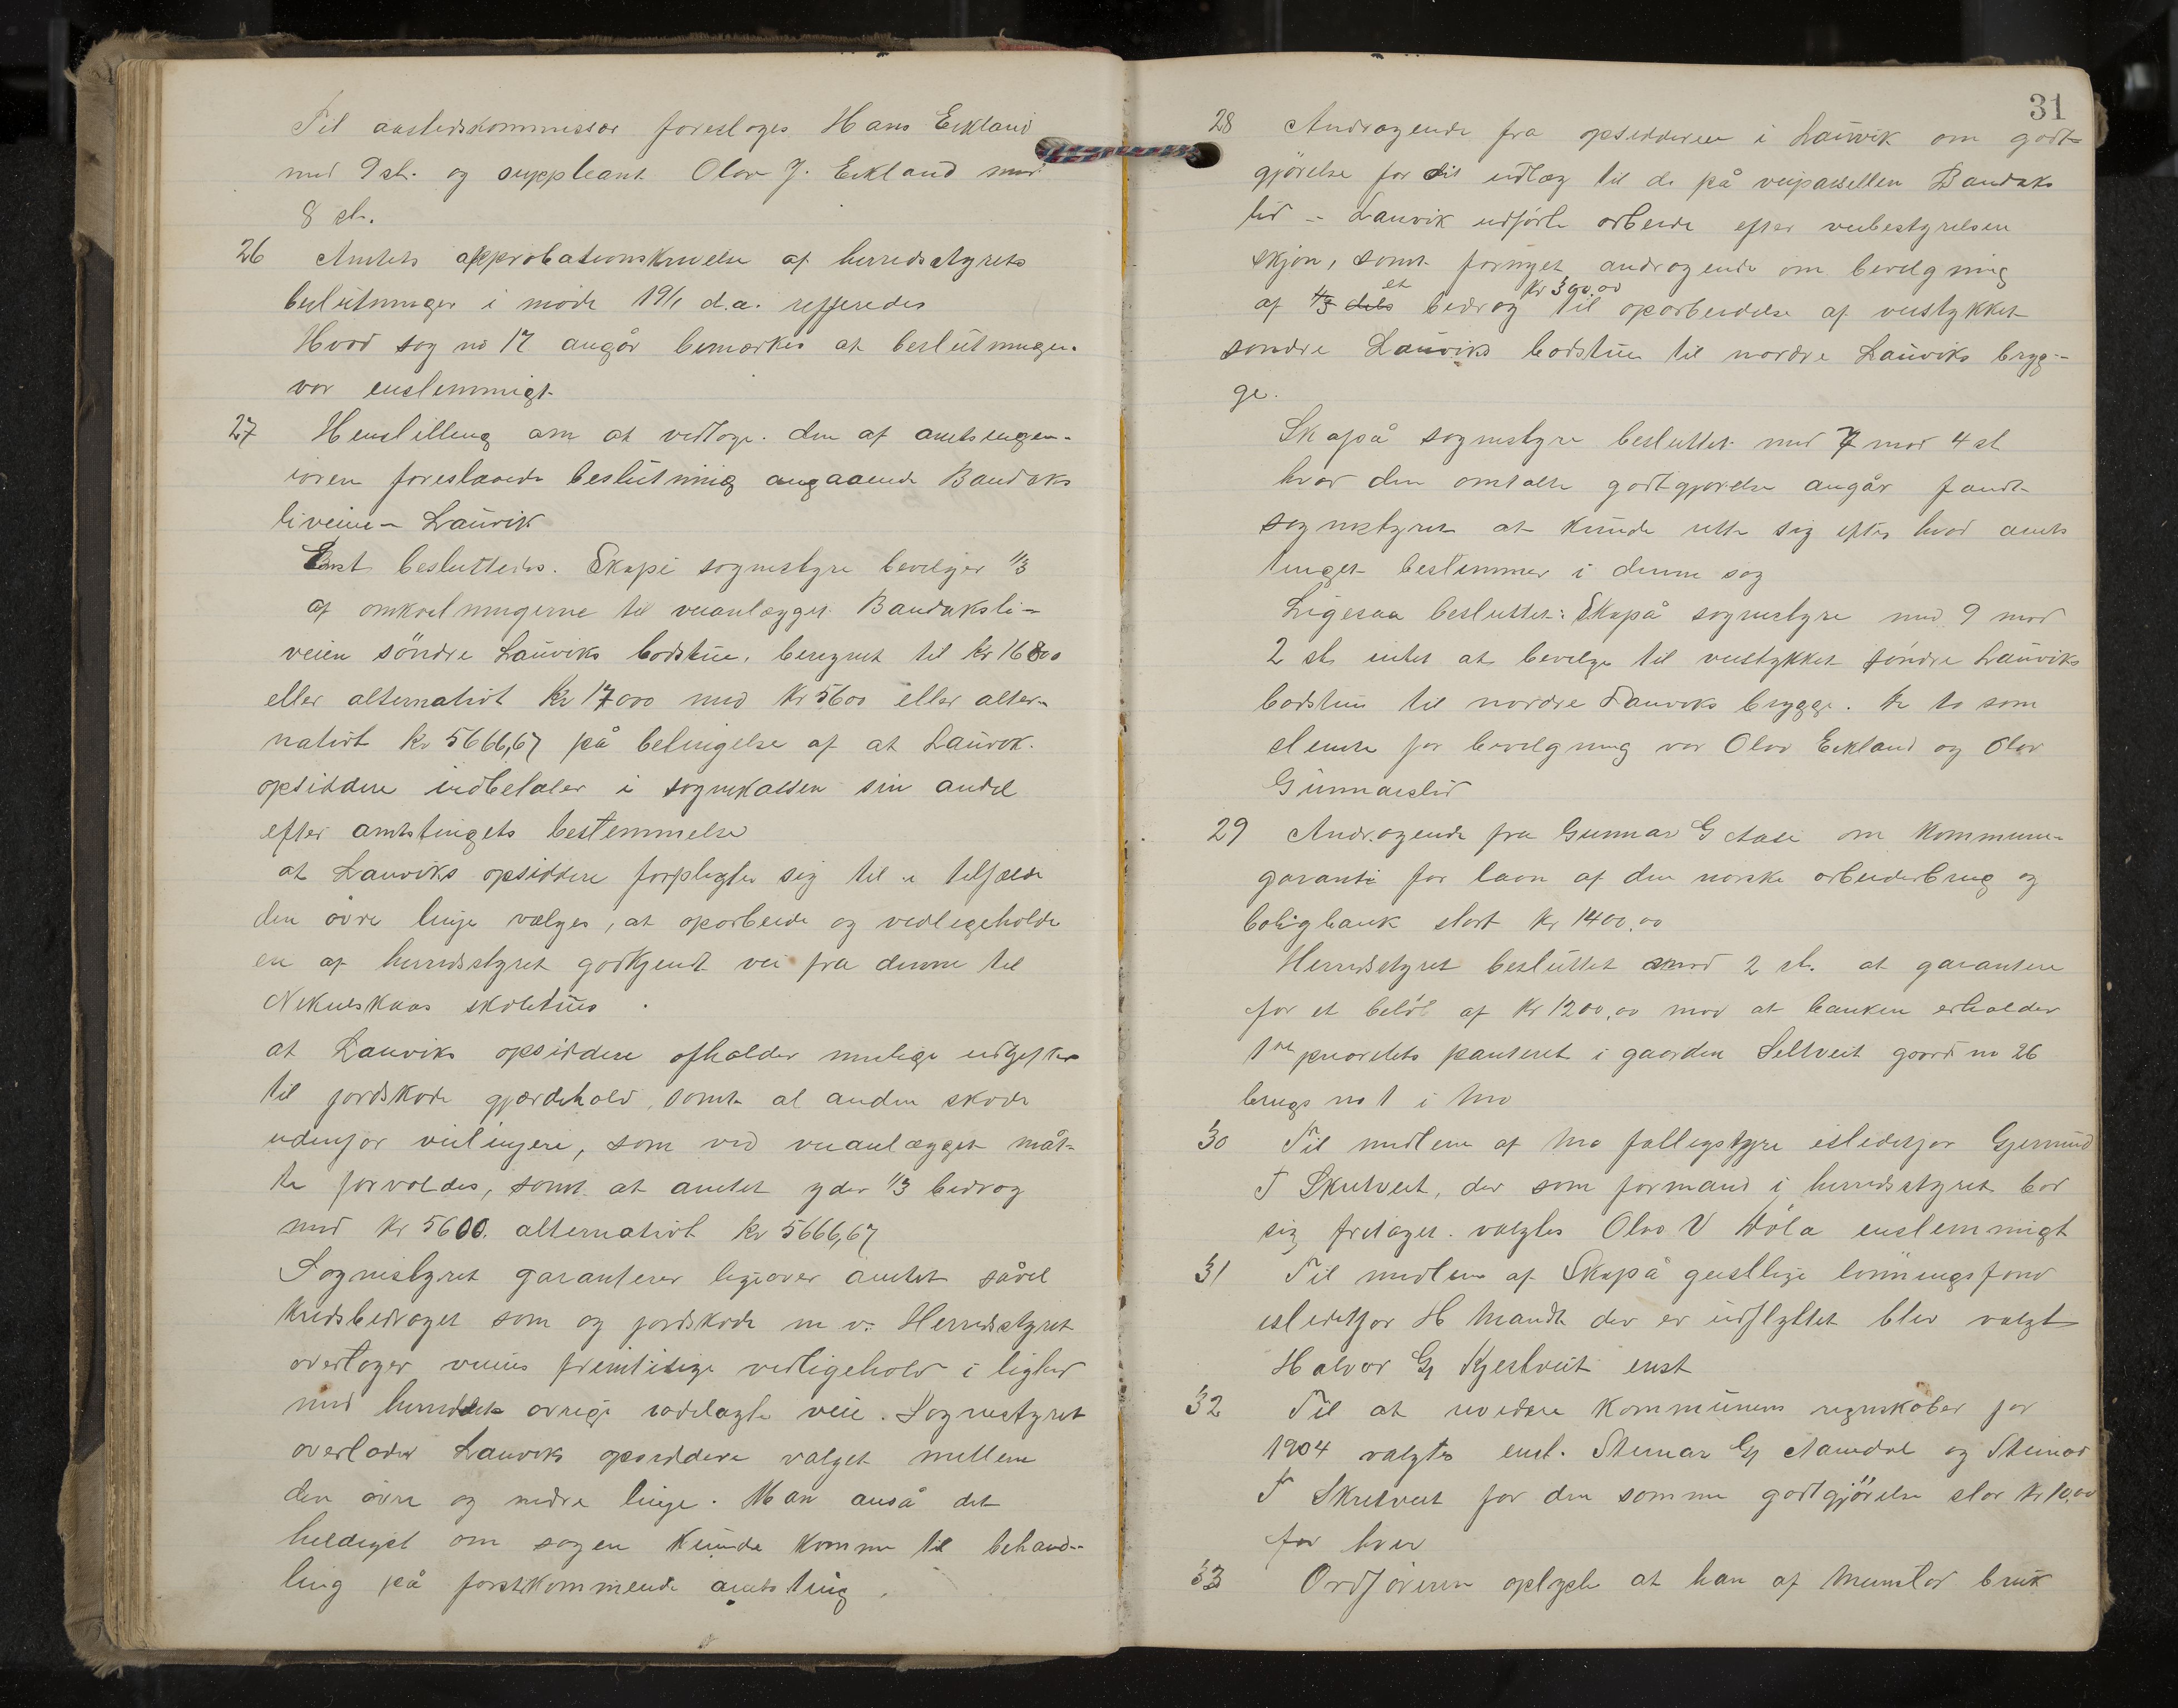 Til anstedskommissær foresloges Hans Eekland
med 9 st. og suppleant Olav J. Eekland med
8 st.
26 Amtets approbationskrivelse af herredsstyrets
beslutninger i møde 19/1 d.a. refferedes
Hvad sag no 17 angår bemærkes at beslutningen
var enstemmigt
27 Henstilling om at vedtage den af amtsingen-
iøren foreslaaede beslutning angaaende Bandaks
liveien - Lauvik
Enst besluttedes. Skapå sognestyre bevilger 1/3
af omkostningerne til veianlægget Bandaksli-
veien söndre Lauviks badstue, beregnet til kr 16800
eller alternativt kr 17000 med kr 5600 eller alter-
nativt kr 5666,67 på betingelse af at Lauvik
opsiddere indbetaler i sognekassen sin andel
efter amtstingets bestemmelse
at Lauviks opsiddere forpligter sig til i tilfælde
den øvre linje vælges, at oparbeide og vedligeholde
en af herredsstyret godkjendt vei fra denne til
skolehus
at Lauviks opsiddere afholder mulige udgifter
til jordskade gjærdehold, samt al anden skade
udenfor veilinjen, som ved veianlægget måt-
te forvoldes, samt at amtet yder 1/3 bidrag
med kr 5600. alternativt kr 5666,67
Sognestyret garanterer ligeover amtet såvel
kredsbedraget som og jordskade m v. Herredsstyret
overtager veiens fremtidige vedligehold i lighed
med herredets øvrige rodelagte veie. Sognestyret
overlader Lauviks opsiddere valget mellem
den øvre og nedre linje. Man anså det
heldigst om sagen kunde komme til behand-
ling på førstkommende amtsting.
31
28 Andragende fra opsidderne i Lauvik om godt-
gjörelse for sit udlæg til de på veiparsellen Bandaks
lid - Lauvik udførte arbeide efter veibestyrelsen
skjøn, samt fornyet andragende om bevilgning
af 1/3 dels et bedrag kr 300.00 til oparbeidelse af veistykket
søndre Lauviks badstue til nordre Lauviks bryg-
ge.
Skapå sognestyre besluttet med 7 mod 4 st
hvad den omtalte godtgjørelse angår fandt
sognestyret at kunde rette sig efter hvad amts
tinget bestemmer i denne sag
Ligesaa besluttet: Skapå sognestyre med 9 mod
2 st. intet at bevilge til veistykket søndre Lauviks
badstue til nordre Lauviks brygge. De to som
stemte for bevilgning var Olav Eekland og Olav
Gunnarslid
29 Andragende fra Gunnar G Aase om kommune-
garanti for laan af den norske arbeiderbrug og
boligbank stort kr 1400.00
Herredsstyret besluttet mod 2 st. at garantere
for et beløb af kr 1200,00 mod at banken erholder
1ste prioritets panteret i gaarden Seltveit gaard no 26
brugs no 1 i Mo
30 Til medlem af Mo fattigstyre istedetfor Gjermund
T Skretveit, der som formand i herredsstyret bad
sig fritaget. valgtes Olav V Höla enstemmigt
31 Til medlem af Skapå geistlige lönningsfond
istedetfor H Mandt der er udflyttet blev valgt
Halvor G Kjestveit enst
32 Til at revidere kommunens regnskaber for
1904 valgtes enst. Steinar G Aamdal og Steinar
T Skretveit for den samme godtgjörelse stor kr 10,00
for hver
33 Ordføreren oplyste at han af bruk